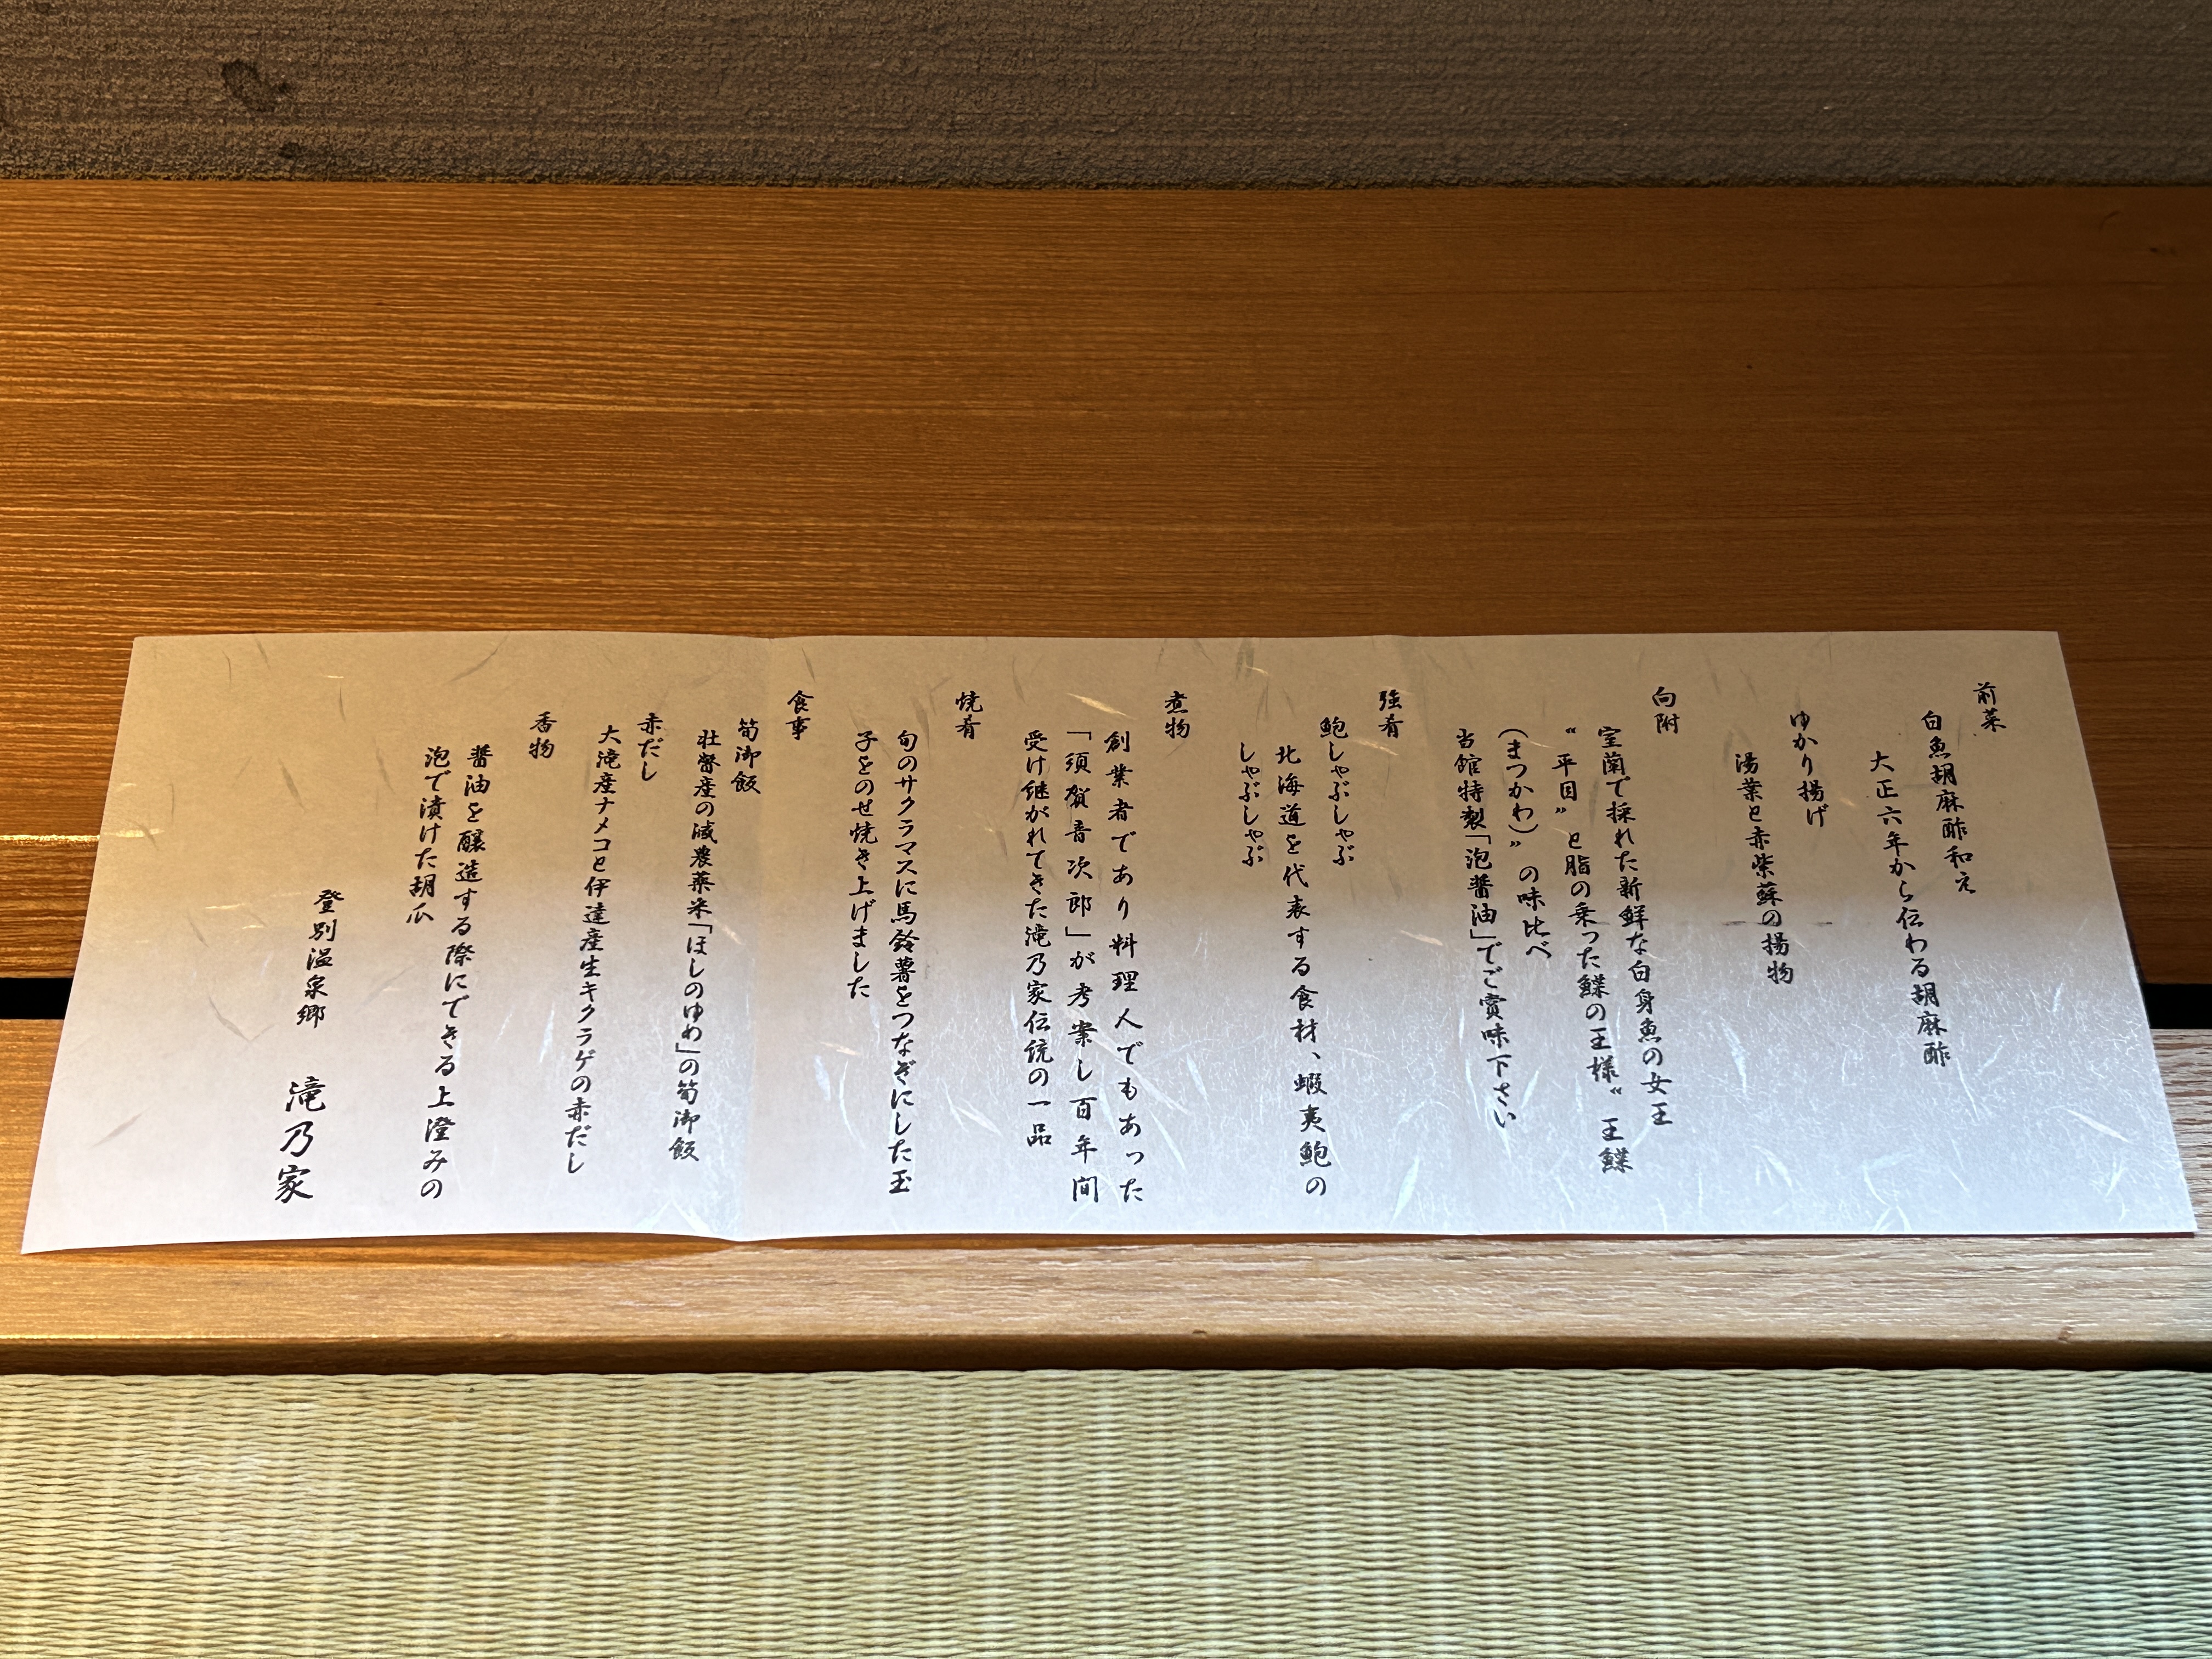 前菜
白魚胡麻酢和え
大正六年から伝わる胡麻酢
ゆかり揚げ
湯葉と赤紫蘇の揚物
向附
室蘭で採れた新鮮な白身魚の女王
〝平目〟と脂の乗った鰈の王様〝王鰈
(まつかわ)〟の味比べ
当館特製「泡醤油」でご賞味下さい
強肴
鮑しゃぶしゃぶ
北海道を代表する食材、蝦夷鮑の
しゃぶしゃぶ
煮物
創業者であり料理人でもあった
「須賀音次郎」が考案し百年間
受け継がれてきた滝乃家伝統の一品
焼肴
旬のサクラマスに馬鈴薯をつなぎにした玉
子をのせ焼き上げました
食事
筍御飯
壮瞥産の減農薬米「ほしのゆめ」の筍御飯
赤だし
大滝産ナメコと伊達産生キクラゲの赤だし
香物
醤油を醸造する際にできる上澄みの
泡で漬けた胡瓜
登別温泉郷 滝乃家